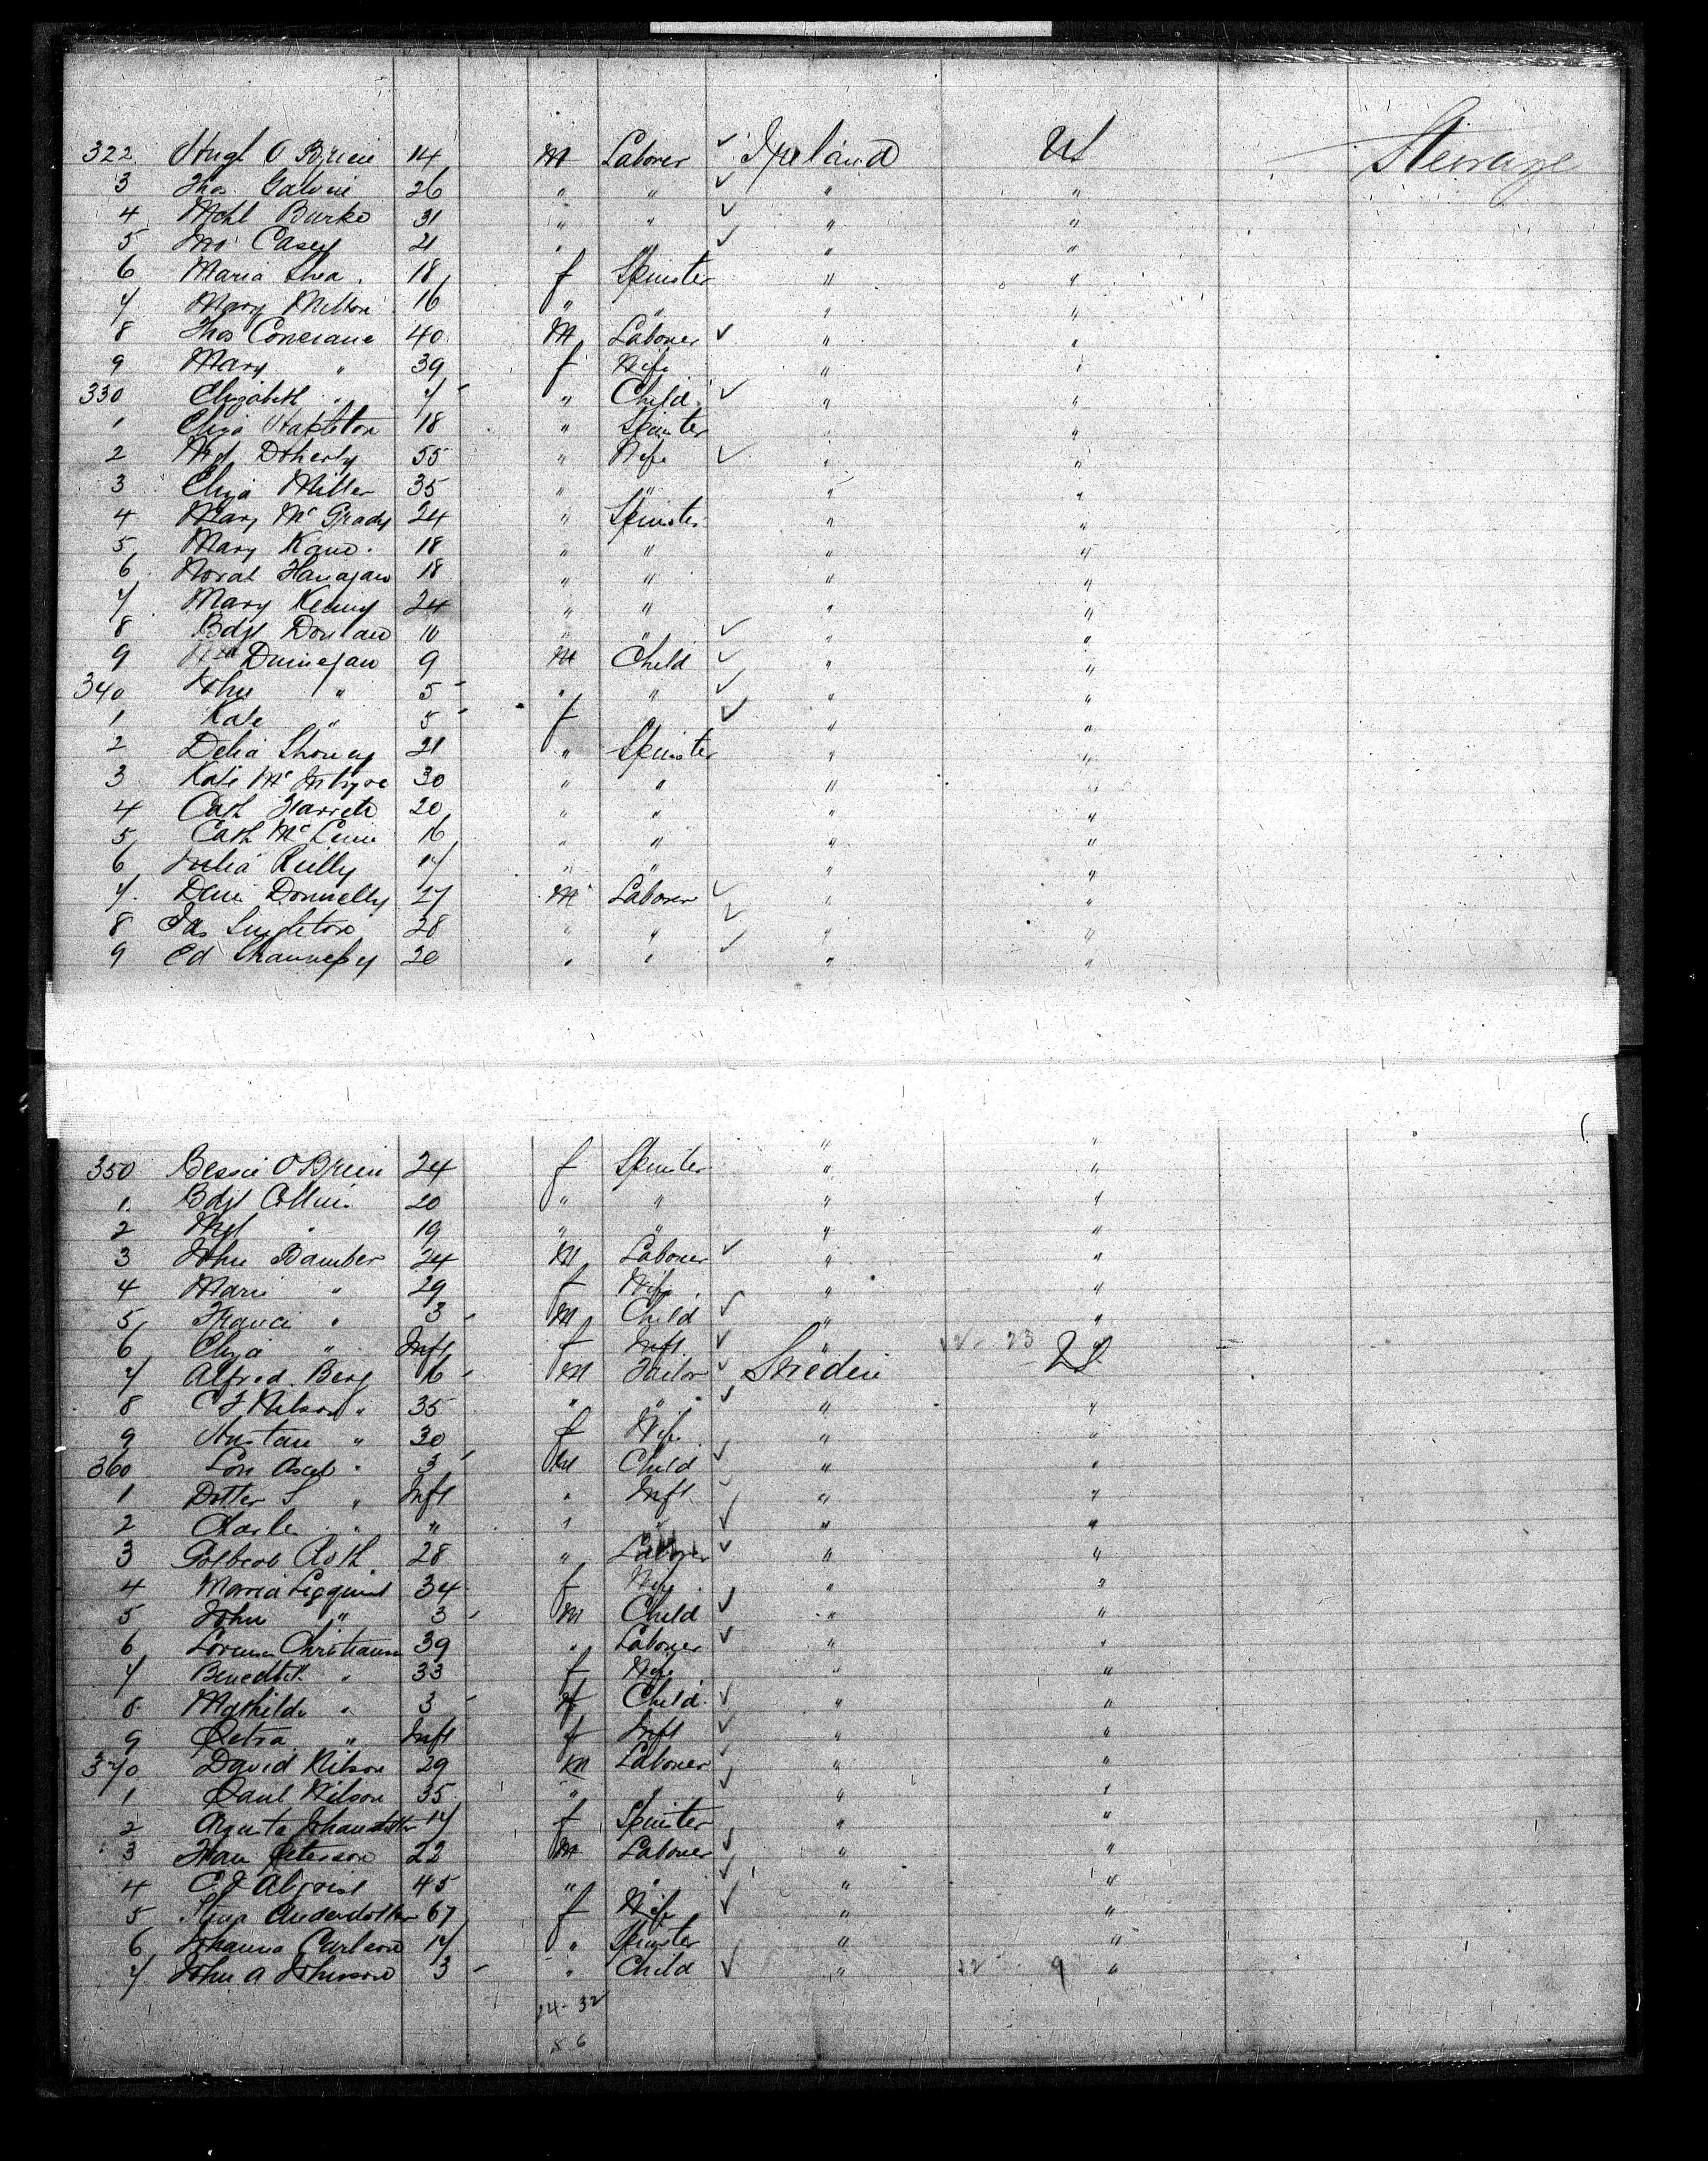 322 Hugh O Brien 14 M Laborer ✓ Ireland US Steerage
3 Thos. Galvin 26 " " ✓ " "
4 Mchl Burke 31 " " ✓ " "
5 Casey 21 " " ✓ " "
6 Maria Shea 18 f Spinster " "
7 Mary Melton 16 " " " "
8 Thos 40 M Laborer ✓ " "
9 Mary " 39 f Wife " "
330 Elizabeth " 7 " Child ✓ " "
1 Eliza Stapleton 18 " Spinster " "
2 Mgt Doherty 55 " Wife ✓ " "
3 Eliza Miller 35 " " " "
4 Mary Mc Grady 24 " Spinster " "
5 Mary Kane 18 " " " "
6 Norah Flanagan 18 " " " "
7 Mary Kenny 24 " " " "
8 Bdgt Donlan 10 " " ✓ " "
9 Dunnegan 9 M Child ✓ " "
340 John " 5 " " ✓ " "
1 Kate " 5 f " ✓ " "
2 Delia 21 " Spinster " "
3 Kate Mc Intyre 30 " " " "
4 Cath 20 " " " "
5 Cath Mc 16 " " " "
6 Julia Reilly 17 " " " "
7 Donnelly 27 M Laborer ✓ " "
8 Jas Singleton 28 " " ✓ " "
9 Ed Shaunessy 20 " " ✓ " "
" "
350 Bessie O Brien 24 f Spinster " "
1 Bdgt Collins 20 " " " "
2 Mgt " 19 " " " "
3 John Bamber 24 M Laborer ✓ " "
4 Marie " 29 f Wife " "
5 Francis " 3 M Child ✓ " "
6 Eliza " Inft f Inft ✓ " 23 "
7 Alfred Berg 16 M Tailor ✓ Sweden US
8 C F Nilson " 35 " " ✓ " "
9 " 30 f Wife " "
360 " 3 M Child ✓ " "
1 Dotter S " Inft " Inft ✓ " "
2 Charles " " " " ✓ " "
3 Roth 28 " Laborer ✓ " "
4 Maria 34 f Wife " "
5 John " 3 M Child ✓ " "
6 Christianson 39 " Laborer ✓ " "
7 " 33 f Wife " "
8 Mathilde " 3 f Child ✓ " "
9 Petra " Inft f Inft ✓ " "
370 David Nilson 29 M Laborer ✓ " "
1 Paul Nilson 35 " " ✓ " "
2 Augusta 17 f Spinster " "
3 Peterson 22 M Laborer ✓ " "
4 45 " " ✓ " "
5 Anderdotter 67 f Wife ✓ " "
6 Johanna Carlson 17 " Spinster " "
7 John A Johnson 3 " Child ✓ " 9 "
24-32
56